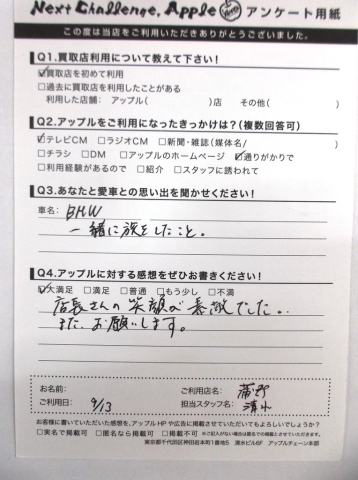 Next Challenge, Apple アンケート用紙
この度は当店をご利用いただきありがとうございました。
Q1.買取店利用について教えて下さい!
☑買取店を初めて利用
□過去に買取店を利用したことがある
利用した店舗: アップル( )店 その他( )
Q2.アップルをご利用になったきっかけは?(複数回答可)
☑テレビCM □ラジオCM □新聞・雑誌(媒体名/ )
□チラシ □DM □アップルのホームページ ☑通りがかりで
□利用経験があるので □紹介 □スタッフに誘われて
Q3.あなたと愛車との思い出を聞かせください!
車名: BMW
一緒に旅をしたこと。
Q4.アップルに対する感想をぜひお書きください!
☑大満足 □満足 □普通 □もう少し □不満
店長さんの笑顔が素敵でした。
また、お願いします。
お名前: ご利用店名:
ご利用日: 9/13 担当スタッフ名: 清水
お客様に書いていただいた感想を、アップルHPや広告に掲載させていただいてもよろしいでしょうか?
□実名で掲載可 □匿名なら掲載可 □掲載不可 ※ご記入がない場合は匿名での掲載とさせていただきます。
東京都千代田区神田岩本町1番地5 清水ビル6F アップルチェーン本部